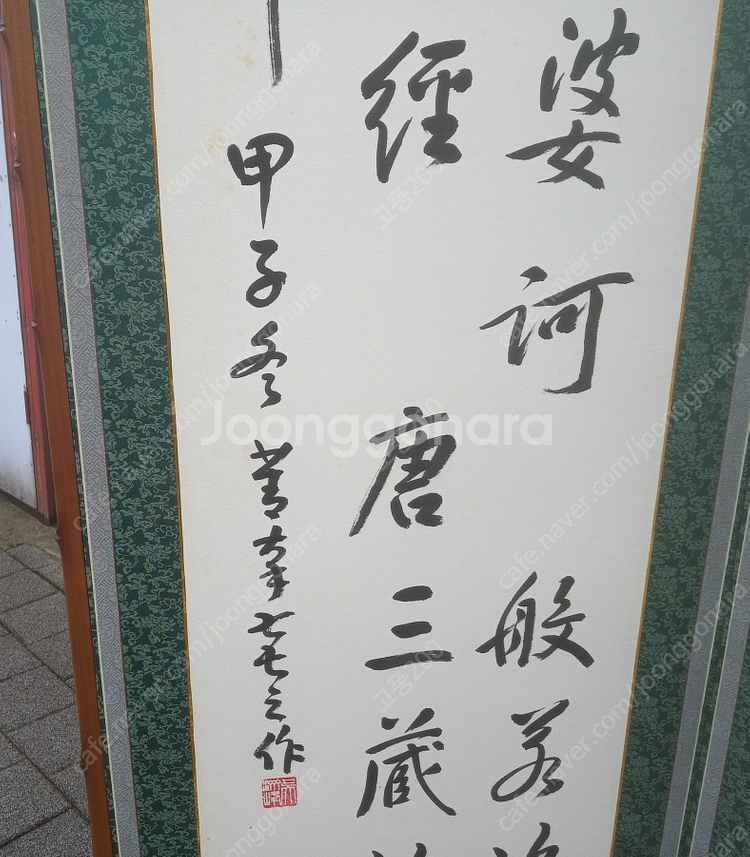 婆訶 般若
經 唐三蔵
甲子冬 菁 七十七之作
Joonggonara
cafe.naver.com/joonggonara
고풍200